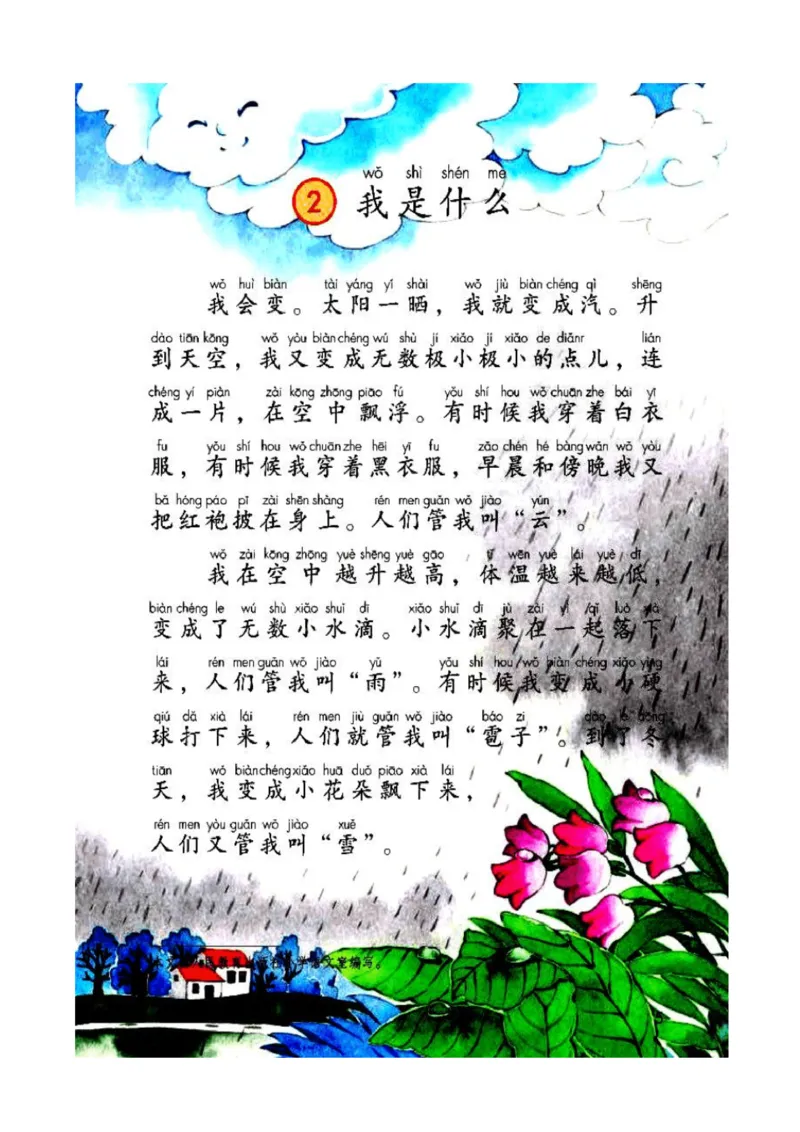 wǒ shì shén me
2 我是什么
wǒ huì biàn tài yáng yí shài wǒ jiù biàn chéng qì shēng
我会变。太阳一晒，我就变成汽。升
dào tiān kōng wǒ yòu biàn chéng wú shù jí xiǎo jí xiǎo de diǎnr lián
到天空，我又变成无数极小极小的点儿，连
chéng yí piàn zài kōng zhōng piāo fú yǒu shí hou wǒ chuān zhe bái yī
成一片，在空中飘浮。有时候我穿着白衣
fu yǒu shí hou wǒ chuān zhe hēi yī fu zǎo chén hé bàng wǎn wǒ yòu
服，有时候我穿着黑衣服，早晨和傍晚我又
bǎ hóng páo pī zài shēn shàng rén men guǎn wǒ jiào yún
把红袍披在身上。人们管我叫“云”。
wǒ zài kōng zhōng yuè shēng yuè gāo tǐ wēn yuè lái yuè dī
我在空中越升越高，体温越来越低，
biàn chéng le wú shù xiǎo shuǐ dī xiǎo shuǐ dī jù zài yì qǐ luò xià
变成了无数小水滴。小水滴聚在一起落下
lái rén men guǎn wǒ jiào yǔ yǒu shí hou wǒ biàn chéng xiǎo yìng
来，人们管我叫“雨”。有时候我变成小硬
qiú dǎ xià lái rén men jiù guǎn wǒ jiào báo zi dào le dōng
球打下来，人们就管我叫“雹子”。到了冬
tiān wǒ biàn chéng xiǎo huā duǒ piāo xià lái
天，我变成小花朵飘下来，
rén men yòu guǎn wǒ jiào xuě
人们又管我叫“雪”。